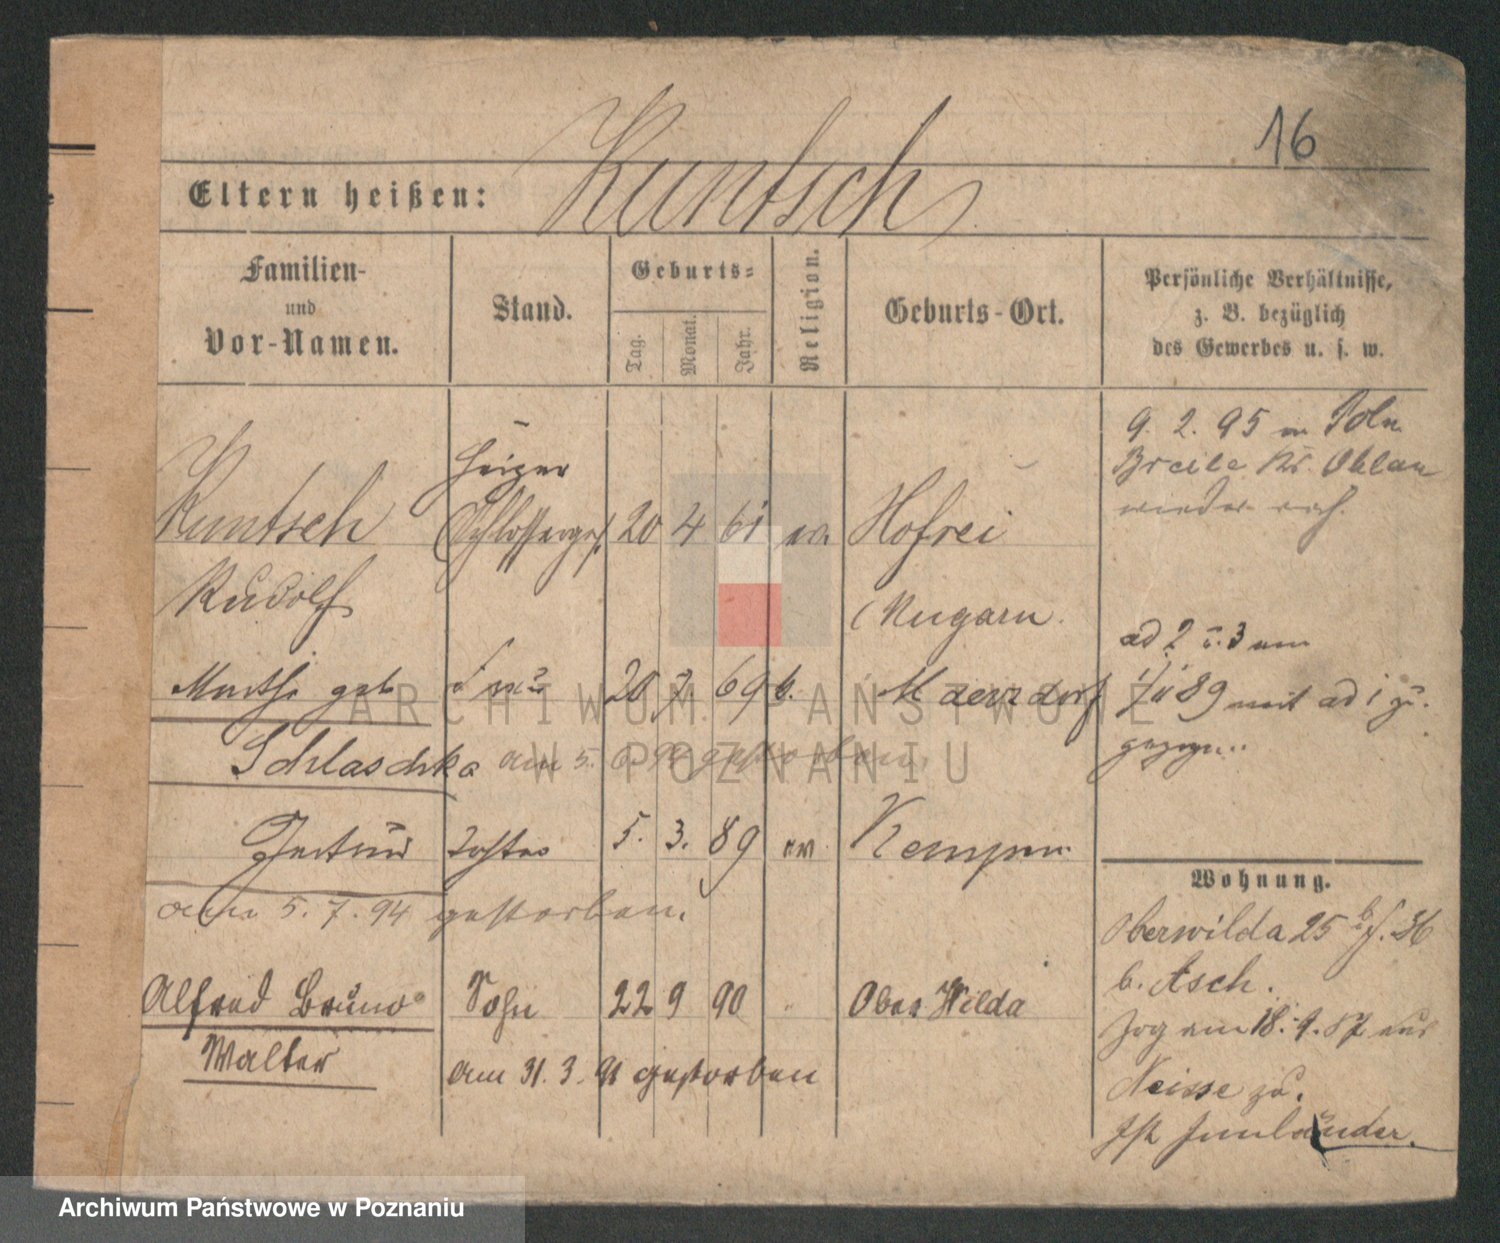 16
Eltern heißen: Kuntsch
Familien-
und
Vor-Namen.
Stand.
Geburts-
Tag.
Monat.
Jahr.
Religion.
Geburts-Ort.
Persönliche Verhältnisse,
z. B. bezüglich
des Gewerbes u. s. w.
9. 2. 95 Poln.
Kr. Ohlau
wieder
Heizer
Kuntsch Schlosserges. 20 4 61 ev. Hofrei
Rudolf
(Ungarn.
ad 2 u. 3 am
Marthe geb. Frau 20 7. 69 k. Maerzdorf
89 mit ad 1 zu-
gezogen.
Schlaschka am 5. gestorben
Gertrud Tochter 5. 3. 89 ev. Kempen
am 5. 7. 94 gestorben.
Wohnung.
Oberwilda 25 36
b. Asch.
Alfred Bruno Sohn 22 9 90 " Ober Wilda
Walter
am 31. 3. 91 gestorben
Zog am 18. 9. 87 aus
Neisse zu.
Ist Innländer.
ARCHIWUM PAŃSTWOWE
W POZNANIU
Archiwum Państwowe w Poznaniu